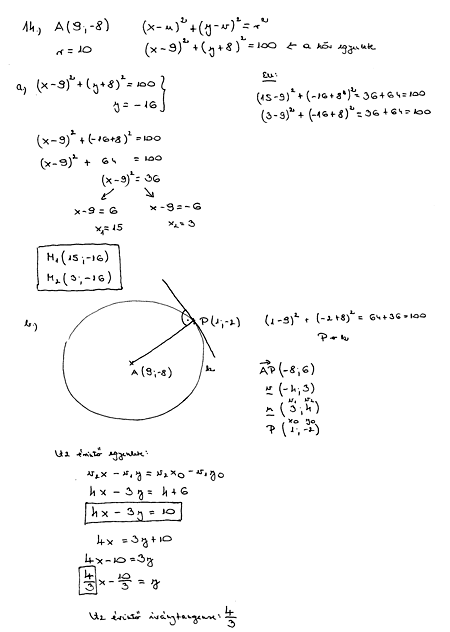 14.) A(9;-8) (x-u)²+(y-v)²=r²
r=10 (x-9)²+(y+8)²=100 ← a kör egyenlete
a) (x-9)²+(y+8)²=100
y=-16
Ell:
(15-9)²+(-16+8)²=36+64=100
(3-9)²+(-16+8)²=36+64=100
(x-9)²+(-16+8)²=100
(x-9)²+ 64 =100
(x-9)²=36
x-9=6 x-9=-6
x₁=15 x₂=3
M₁(15;-16)
M₂(3;-16)
b.)
P(1;-2)
A(9;-8)
k
(1-9)²+(-2+8)²=64+36=100
P ∈ k
AP(-8;6)
v(-4;3)
v₁ v₂
n(3;4)
x₀ y₀
P(1;-2)
Az érintő egyenlete:
v₂x-v₁y=v₂x₀-v₁y₀
4x-3y=4+6
4x-3y=10
4x=3y+10
4x-10=3y
4/3x-10/3=y
Az érintő iránytangense: 4/3